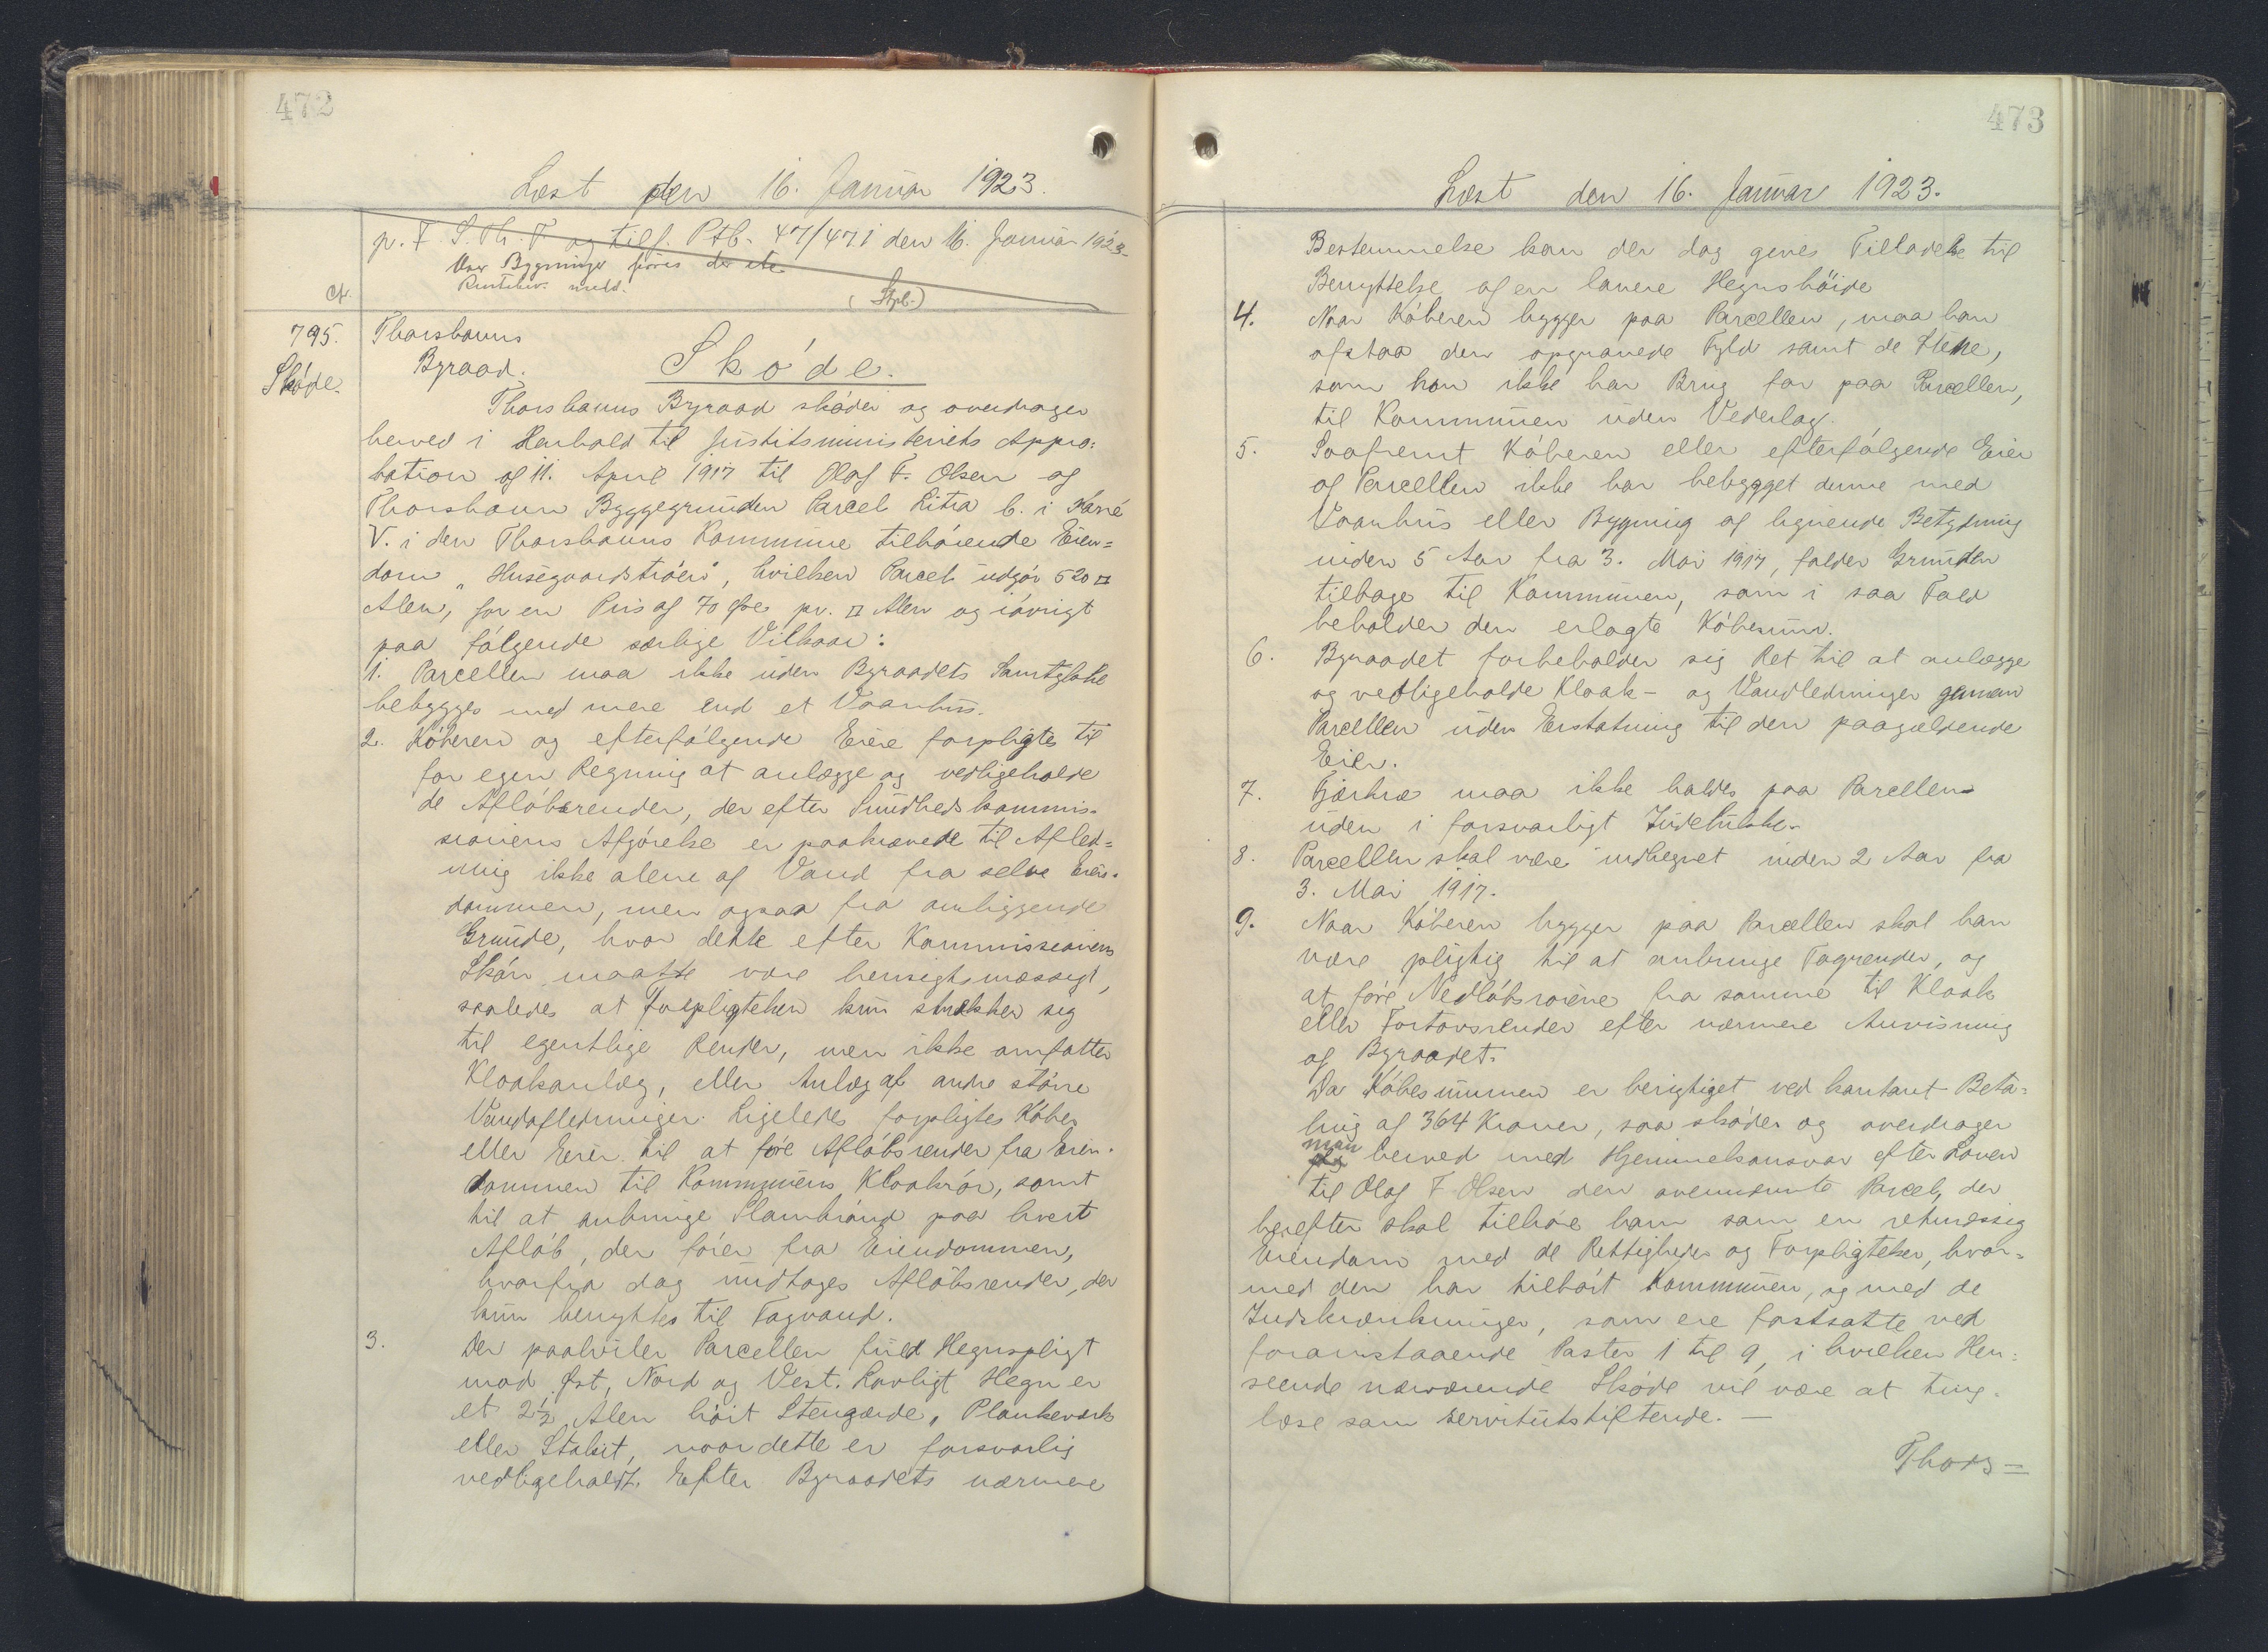 472
Læst den 16. Januar 1923.
p. T. S. Th. T. og tilf. Ptb. 47/471 den 16. Januar 1923.
Bygninger föres der ete
(Stpl.)
cfr.
795.
Sköde.
Thorshavns
Byraad.
Sköde.
Thorshavns Byraad sköder og overdrager
herved i Henhold til Justitsministeriets Appro:
bation af 11. April 1917 til Olaf F. Olsen og
Thorshavn Byggegrunden Parcel Litra b. i Karré
V. i den Thorshavns Kommune tilhörende Eien=
dom "Husegaardströen", hvilken Parcel udgör 520 □
Alen, for en Pris af 70 Öre pr. □ Alen og iövrigt
paa fölgende særlige Vilkaar:
1. Parcellen maa ikke uden Byraadets Samtykke
bebygges med mere end et Vaanhus.
2. Köberen og efterfölgende Eiere forpligtes til
for egen Regning at anlægge og vedligeholde
de Aflöbsrender, der efter Sundhedskommis-
sionens Afgörelse er paakrævede til Afled=
ning ikke alene af Vand fra selve Eien-
dommen, men ogsaa fra omliggende
Grunde, hvor dette efter Kommissionens
Skön maatte være hensigtsmæssigt,
saaledes at Forpligtelsen kun strækker sig
til egentlige Render, men ikke omfatter
Kloakanlæg, eller Anlæg af andre större
Vandafledninger. Ligeledes forpligtes Köber
eller Eier til at före Aflöbsrender fra Eien-
dommen til Kommunens Kloakrör, samt
til at anbringe Slambrönd paa hvert
Aflöb, der förer fra Eiendommen,
hvorfra dog undtages Aflöbsrender, der
kun benyttes til Tagvand.
3. Der paahviler Parcellen fuld Hegnspligt
mod Øst, Nord og Vest. Lovligt Hegn er
et 2½ Alen höit Stengærde, Plankeværk
eller Stakit, naar dette er forsvarlig
vedligeholdt. Efter Byraadets nærmere
473
Læst den 16. Januar 1923.
Bestemmelse kan der dog gives Tilladelse til
Benyttelse af en lavere Hegnshöide
4. Naar Köberen bygger paa Parcellen, maa han
afstaa den opgravede Fyld samt de Stene,
som han ikke har Brug for paa Parcellen,
til Kommunen uden Vederlag.
5. Saafremt Köberen eller efterfölgende Eier
af Parcellen ikke har bebygget denne med
Vaanhus eller Bygning af lignende Betydning
inden 5 Aar fra 3. Mai 1917, falder Grunden
tilbage til Kommunen, som i saa Fald
beholder den erlagte Köbesum.
6. Byraadet forbeholder sig Ret til at anlægge
og vedligeholde Kloak- og Vandledninger gennem
Parcellen uden Erstatning til den paagældende
Eier.
7. Fjærkræ maa ikke holdes paa Parcellen
uden i forsvarligt Indelukke.
8. Parcellen skal være indhegnet inden 2 Aar fra
3. Mai 1917.
9. Naar Köberen bygger paa Parcellen skal han
være pligtig til at anbringe Tagrender, og
at före Nedlöbsrörene fra samme til Kloak
eller Fortovsrender efter nærmere Anvisning
af Byraadet.
Da Köbesummen er berigtiget ved kontant Beta=
ling af 364 Kroner, saa sköder og overdrager
man herved med Hjemmelsansvar efter Loven
til Olaf F Olsen den ovennævnte Parcel, der
herefter skal tilhöre ham som en retmæssig
Eiendom med de Rettigheder og Forpligtelser, hvor=
med den har tilhört Kommunen, og med de
Indskrænkninger, som ere fastsatte ved
foranstaaende Poster 1 til 9, i hvilken Hen:
seende nærværende Sköde vil være at ting-
læse som servitutstiftende. —
Thors=